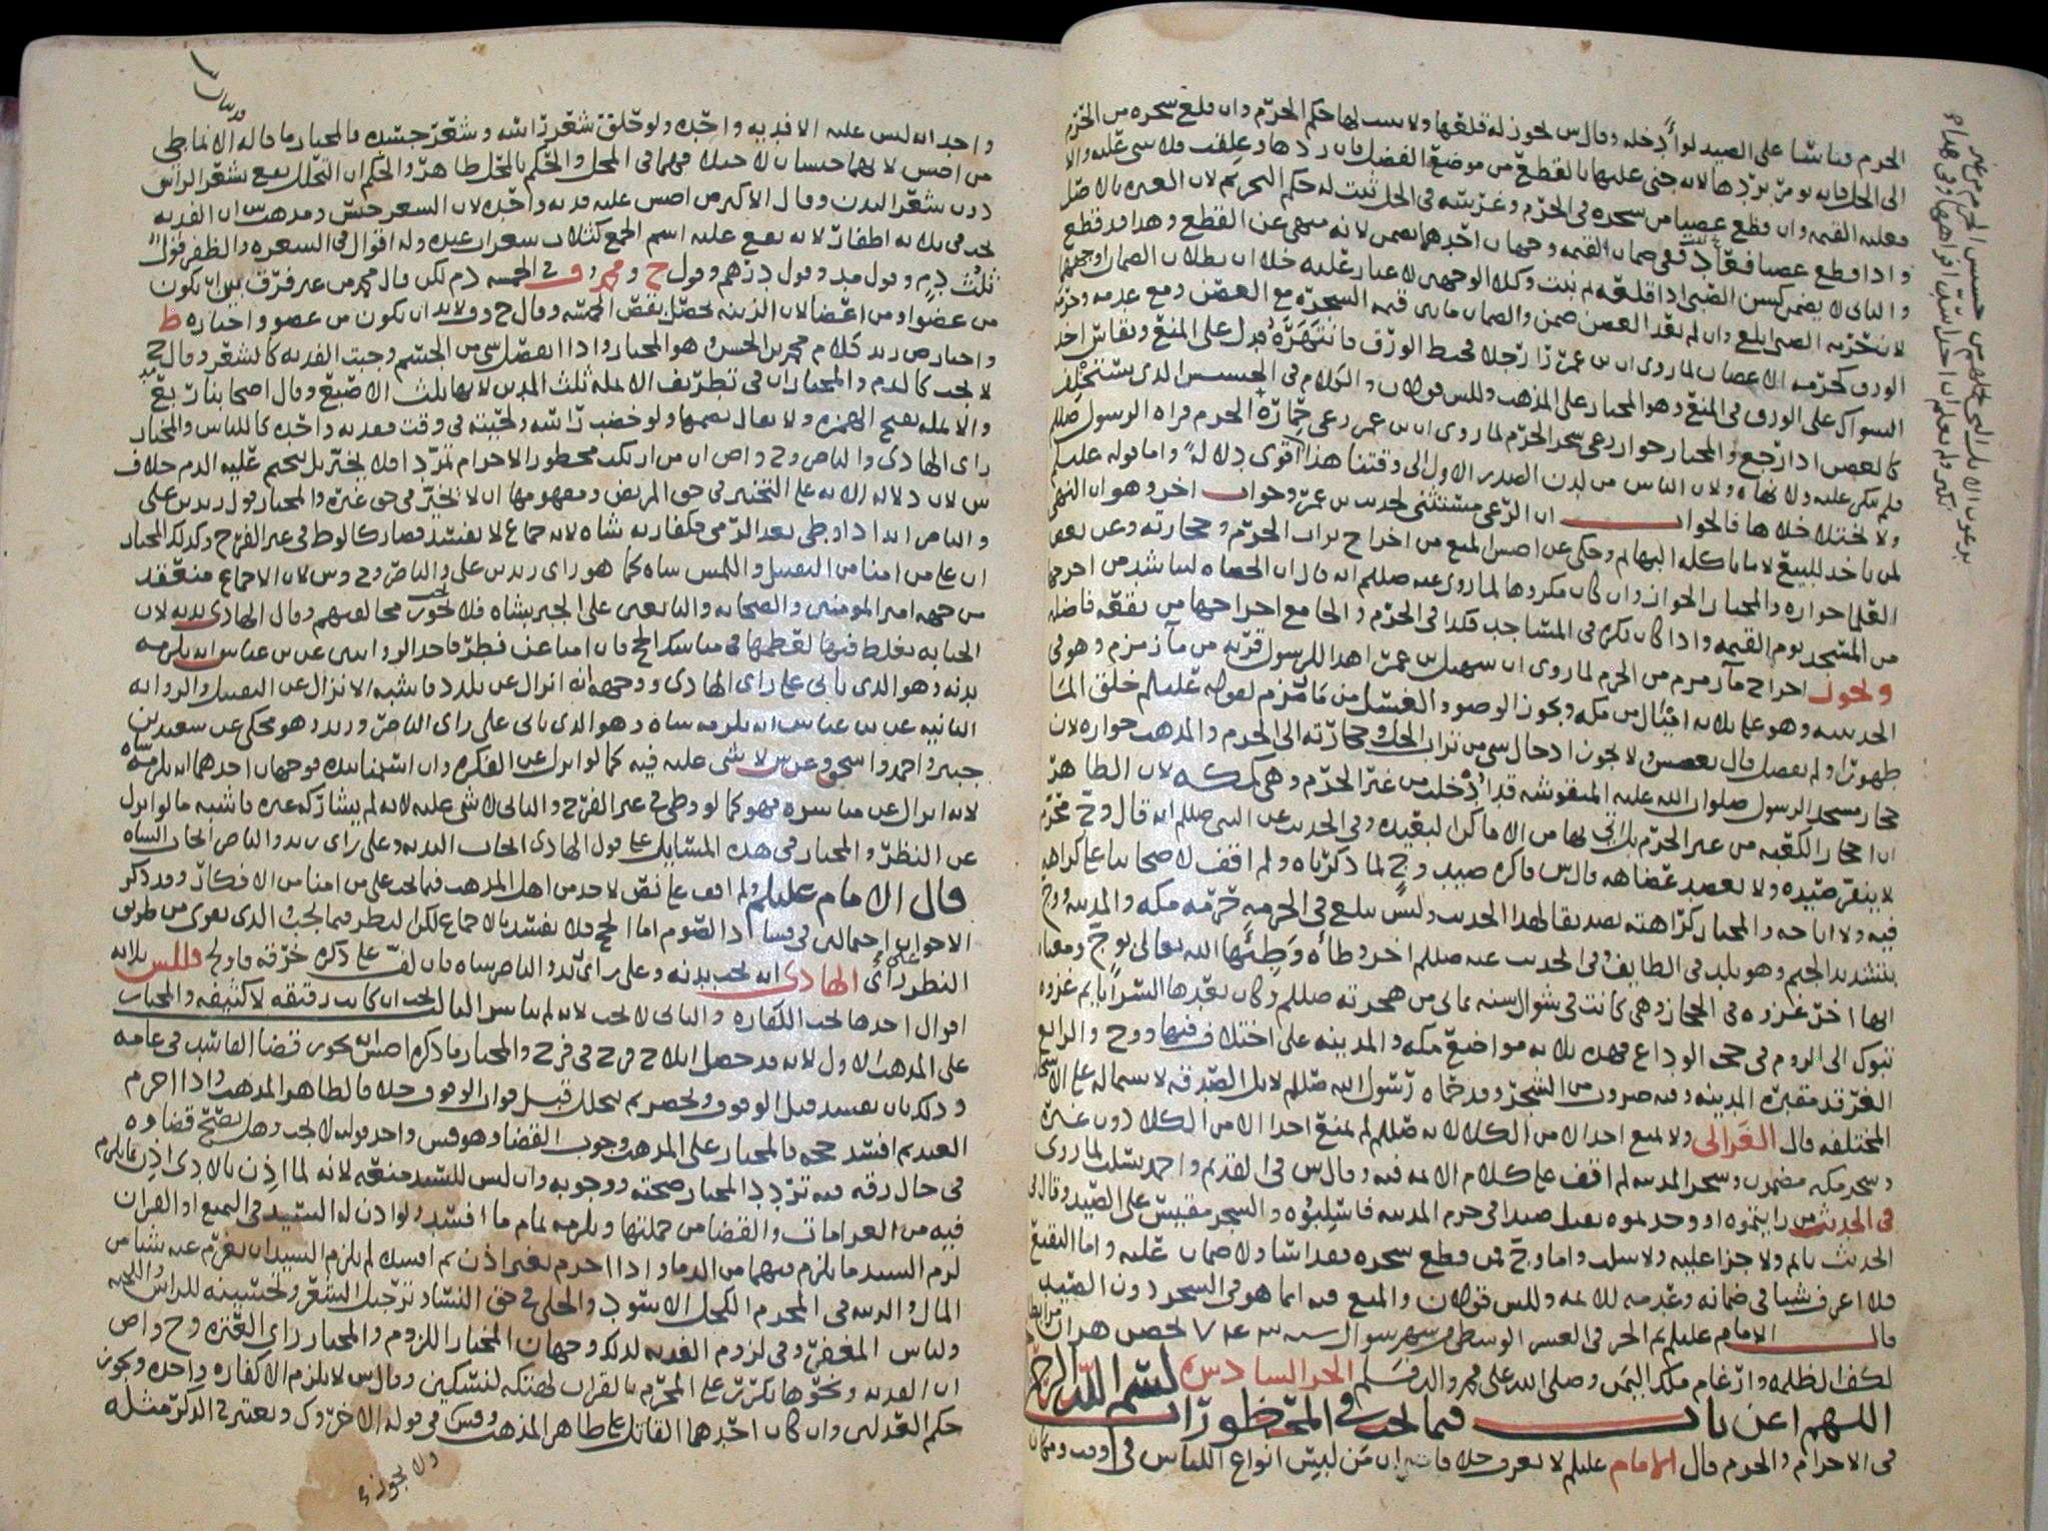 الحرم فناشا على الصيد لو أدخله وقال س لحوز له قلعها ولا يثبت لها حكم الحرم وان قلع شجره من الحرم
الى الحل فانه يومر بردها لانه جنى عليها بالقطع من موضع الفضل فان ردها وعلقت فلا شى عليه والا
فعليه القيمه وان قطع غصنا من شجره فى الحرم وغرسه فى الحل ثبت له حكم التحريم لان العبره بالاصل
واذا قطع غصنا فعاد ففى ضمان القيمه وجهان احدهما يضمن لانه منهى عن القطع وهذا قد قطع
والثانى لا يضمن كسن الصبى اذا قلعه ثم نبت وكلا الوجهين لا غبار عليه خلا ان بطلان الضمان
الورق كحرمه الاغصان لما روى ان بن عمر رأى رجلا يخبط الورق فانتهره فدل على المنع وبقاس اخذ
السواك على الورق فى المنع وهو المختار على المذهب وللس قولان والكلام فى الحشيش الذى يستخلف
كالغصن اذا رجع والمختار جواز رعى شجر الحرم لما روى ان بن عمر رعى حماره الحرم فراه الرسول صللم
فلم ينكر عليه ولا نهاه ولان الناس من لدن الصدر الاول الى وقتنا هذا اقوى دلاله واما قوله عليلم
ولا يختلا خلاها فالجواب ان الرعى مستثنى لحديث بن عمر وجواب اخر وهو ان النهى
لمن ياخذ للبيع لا ما ياكله البهايم وحكى عن اصش المنع من اخراج تراب الحرم وحجارته وعن بعض
العلما جوازه والمختار الجواز وان كان مكروها لما روى عنه صللم انه قال ان الحصاه لتناشد من اخرجها
من المسجد يوم القيمه واذا كان نكره فى المساجد فكذا فى الحرم والجامع اخراجها من بقعه فاضله
ولجوز اخراج مآ زمزم من الحرم لما روى ان سهيل بن عمر اهدا للرسول قربه من مآ زمزم وهو فى
الحديبيه وهو على ثلاثه اميال من مكه ويجوز الوضو والغسل من مآ زمزم لقوله عليلم خلق المآ
طهورا ولم يفصل قال بعصس ولا يجوز ادخال شى من تراب الحل وحجارته الى الحرم والمذهب جوازه لان
حجار مسجد الرسول صلوات الله عليه المنقوشه قد ادخلت من غير الحرم وهى كمكه لان الظاهر
ان احجار الكعبه من غير الحرم بل اتى بها من الاماكن البعيده وفى الحديث عن النبى صللم انه قال وج محرم
لا ينفر صيده ولا يعضد عضاهه قال س فاكره صيد وج لما ذكرناه ولم اقف لاصحابنا على كراهه
فيه ولا اباحه والمختار كراهته تصديقا لهذا الحديث وليس يبلغ فى الحرمه حرمه مكه والمدينه ووج
بتشديد الجيم وهو بلد فى الطايف وفى الحديث عنه صللم اخر وطأه وطئها الله تعالى بوج ومعناه
انها اخر غزوه فى الحجاز وهى كانت فى شوال سنه ثمانى من هجرته صللم وكان بعدها السرايا ثم غزوه
تبوك الى الروم ثم حجه الوداع فهذه ثلاثه مواضع مكه والمدينه على اختلاف فيها ووج والرابع
الغرقد مقبره المدينه وفيه ضروب من الشجر وقد حماه رسول الله صللم لابل الصدقه لاشتماله على الاشجار
المختلفه قال الغزالى ولا يمنع احدا من الكلا لانه صللم لم يمنع احدا الا من الكلا دون غيره
وشجر مكه مضمون وشجر المدينه لم اقف على كلام الائمه فيه وقال س فى القديم واحمد يسلب لما روى
فى الحديث من رايتموه او وجدتموه يقتل صيدا فى حرم المدينه فاسلبوه والشجر مقيس على الصيد وقال فى
الحديث ياثم ولا جزا عليه ولا سلب واما وج فمن قطع شجره فقد اسا ولا ضمان عليه واما البقيع
فلا اعرف شيا فى ضمانه وعدمه للائمه وللس قولان والمنع فيه انما هو فى الشجر دون الصيد
قال الامام عليلم تم الجز فى العشر الوسطى من شهر شوال سنه بحصن هران
لكف الظلمه وارغام ملك اليمن وصلى الله على محمد واله وسلم الجز السادس بسم الله الرحمن الرحيم
اللهم اعن باب فيما يجب فى المحظورات
فى الاحرام والحرم قال الامام عليلم لا نعرف خلافا ان من لبس انواع اللباس فى وقت ومكان
واحد انه ليس عليه الا فديه واحده ولو حلق شعر راسه وشعر جسده فالمختار ما قاله الانماطى
من اصش لانهما جنسان لاختلافهما فى المحل والحكم فالمحل ظاهر والحكم ان التحلل يقع بشعر الراس
دون شعر البدن وقال الاكثر من اصش عليه فديه واحده لان الشعر جنس ومذهب س ان الفديه
تجب فى ثلاثه اظفار لانه يقع عليه اسم الجمع كثلاث شعرات عنده وله اقوال فى الشعره والظفر قول
ثلث درم وقول مد وقول درهم وقول ح ومحمد وف فى الخمسه دم لكن قال محمد من غير فرق بين ان تكون
من عضو او من اعضا لان الزينه تحصل بقص الخمسه وقال ح وف لابد ان تكون من عضو واختاره ط
واختار ص زيد كلام محمد بن الحسن وهو المختار واذا انفصل شى من الجسم وجبت الفديه كالشعر وقال ح
لا تجب كالدم والمختار ان فى تطريف الانمله ثلث المد لانها ثلث الاصبع وقال اصحابنا ربع
والانمله بفتح الهمزه ولا يقال بضمها ولو خضب راسه ولحيته فى وقت ففديه واحده كاللباس والمختار
راى الهادى والناصر وح واص ان من ارتكب محظور الاحرام تمردا فلا يخير بل يحتم عليه الدم خلاف
س لان دلاله الايه على التخيير فى حق المريض ومفهومها ان لا تخيير فى حق غيره والمختار قول زيد بن على
والناصر انه اذا وطى بعد الرمى فكفارته شاه لانه جماع لا يفسد فصار كالوط فى غير الفرج وكذلك المختار
ان على من امنا من التقبيل واللمس شاه كما هو راى زيد بن على والناصر وح وس لان الاجماع منعقد
من جهه امير المومنين والصحابه والتابعين على الجبر بشاه فلا تجوز مخالفتهم وقال الهادى بدنه لان
الجنايه تغلظ فيها لعظمها فى مناسك الحج فان امنا عن نظر فاحد الروايتين عن بن عباس انه يلزمه
بدنه وهو الذى ياتى على راى الهادى ووجهه انه انزال عن تلدد فاشبه الانزال عن التقبيل والروايه
الثانيه عن بن عباس انه يلزمه شاه وهو الذى ياتى على راى الناصر وزيد وهو محكى عن سعيد بن
جبير واحمد واسحق وعن س لا شى عليه فيه كما لو انزل عن الفكره وان استمنا بيده فوجهان احدهما انه يلزمه شاه
لانه انزال عن مباشره فهو كما لو وطى فى غير الفرج والثانى لا شى عليه لانه لم يشاركه غيره فاشبه ما لو انزل
عن النظر والمختار فى هذه المسايل على قول الهادى ايجاب البدنه وعلى راى زيد والناصر ايجاب الشاه
قال الامام عليلم ولم اقف على نص لاحد من اهل المذهب فيما يجب على من امنا من الافكار وقد ذكر
الاخوان احتمالين فى فساد الصوم اما الحج فلا يفسد بالاجماع لكن النظر فيما يجب والذى يقوى من طريق
النظر على راى الهادى انه تجب بدنه وعلى راى زيد والناصر شاه فان لف على ذكره خرقه فاولج فللس ثلاثه
اقوال احدها تجب الكفاره والثانى لا تجب لانه لم يباشر الثالث تجب ان كانت رقيقه لا كثيفه والمختار
على المذهب الاول لانه قد حصل ايلاج فرج فى فرج والمختار ما ذكره اصش انه يجوز قضا الفاسد فى عامه
وذلك بان يفسد قبل الوقوف ويحصر ثم يتحلل قبل فوات الوقوف خلافا لظاهر المذهب واذا احرم
العبد ثم افسد حجه فالمختار على المذهب وجوب القضا وهو قس واحد قوليه لا يجب وهل يصح قضاوه
فى حال رقه فيه تردد المختار صحته ووجوبه وان ليس للسيد منعه لانه لما اذن بالادى اذن بما يلزم
فيه من الغرامات والقضا من جملتها ويلزمه تمام ما افسد ولو اذن له السيد فى التمتع او القران
لزم السيد ما يلزم فيهما من الدما واذا احرم بغير اذن ثم افسد لم يلزم السيد ان يغرم عنه شيا من
المال والزينه فى المحرم الكحل الاسود والحلى فى حق النسا وترجيل الشعر وتحسينه للراس واللحيه
ولباس المعصفر وفى لزوم الفديه لذلك وجهان المختار اللزوم والمختار راى العتره وح واص
ان الفديه ونحوها تكرر على المحرم بالقران لهتكه لنسكين وقال س لا يلزم الا كفاره واحده ويجوز
حكم العدلين وان كان احدهما القاتل على ظاهر المذهب وقس فى قوله الاخر وك ويعتبر فى الذكر مثله
ولا يجوز